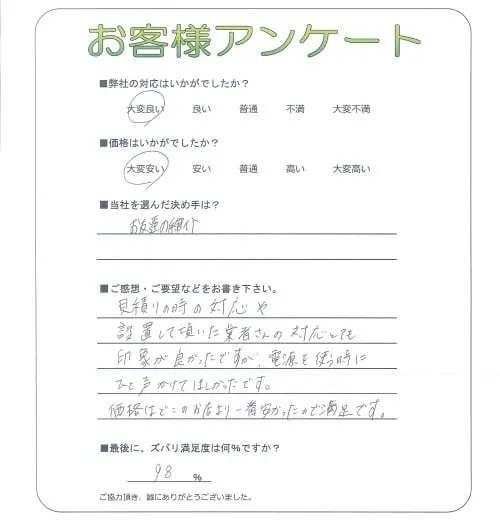 お客様アンケート
■弊社の対応はいかがでしたか？
大変良い 良い 普通 不満 大変不満
■価格はいかがでしたか？
大変安い 安い 普通 高い 大変高い
■当社を選んだ決め手は？
お友達の紹介
■ご感想・ご要望などをお書き下さい。
見積りの時の対応や
設置して頂いた業者さんの対応とても
印象が良かったですが、電源を使う時に
ひと声かけてほしかったです。
価格はどこのお店より一番安かったので満足です。
■最後に、ズバリ満足度は何％ですか？
98 %
ご協力頂き、誠にありがとうございました。